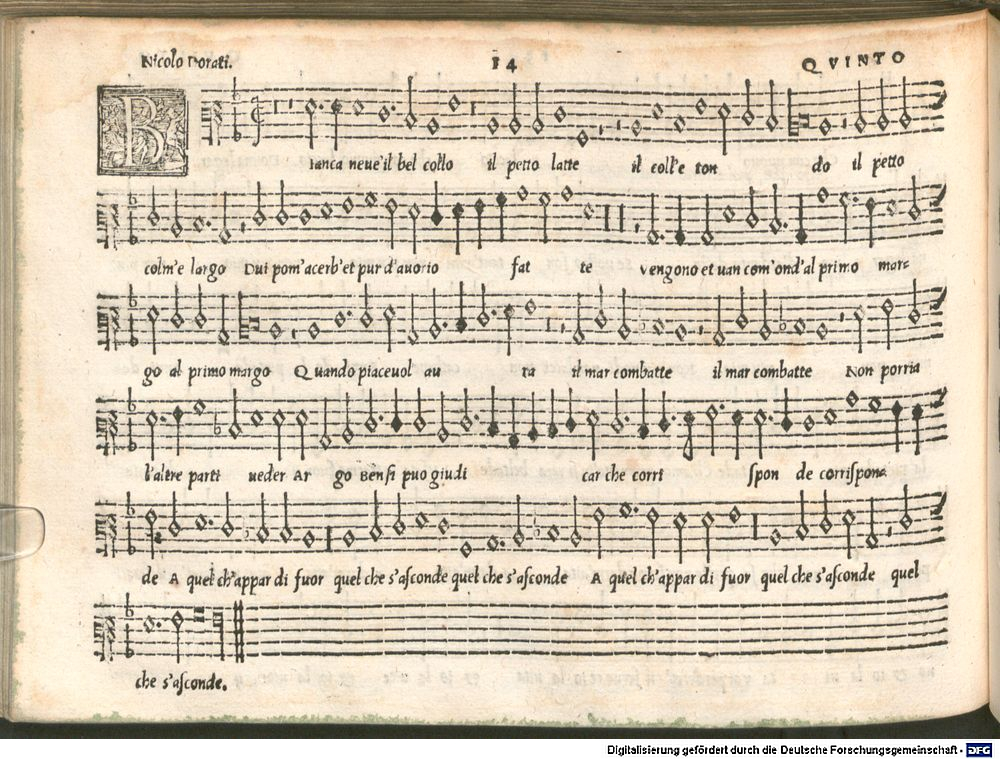 Nicolo Dorati. 14 QVINTO
B
ianca neue'il bel collo il petto latte il coll'e ton do il petto
colm'e largo Dui pom'acerb'et pur d'auorio fat te vengono et uan com'ond'al primo mar=
go al primo margo Quando piaceuol au ra il mar combatte il mar combatte Non porria
l'altre parti ueder Ar go Ben si puo giudi car che corri spon de corrispon=
de A quel ch'appar di fuor quel che s'asconde quel che s'asconde A quel ch'appar di fuor quel che s'asconde quel
che s'asconde.
Digitalisierung gefördert durch die Deutsche Forschungsgemeinschaft - DFG